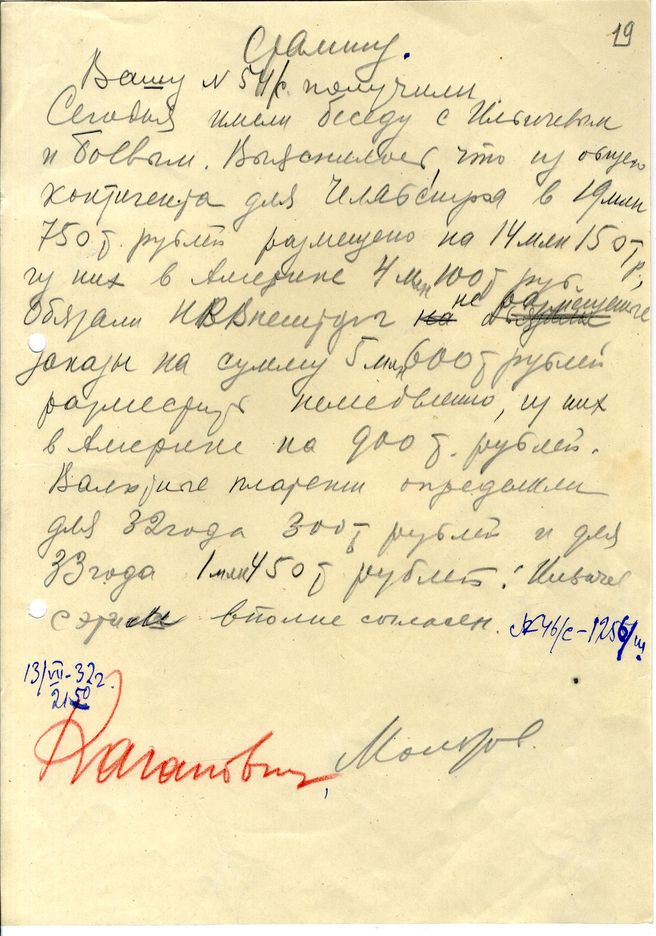 19
Сталину.
Вашу N 54/с. получили.
Сегодня имели беседу с Ильичевым
и Боевым. Выяснилось что из общего
контигента для Челабстроя в 19 млн
750 т. рублей размещено на 14 млн 150 т р.,
из них в Америке 4 млн 100 т руб.
Обязали НКВнешторг на не размещеные
заказы на сумму 5 млн 600 т рублей
разместить немедленно, из них
в Америке на 900 т. рублей.
Валютные платежи определили
для 32 года 300 т рублей и для
33 года 1 млн 450 т рублей.
с этим вполне согласен. N 46/с-1256/ш
13/VII-32 г.
21 50
Каганович, Молотов.